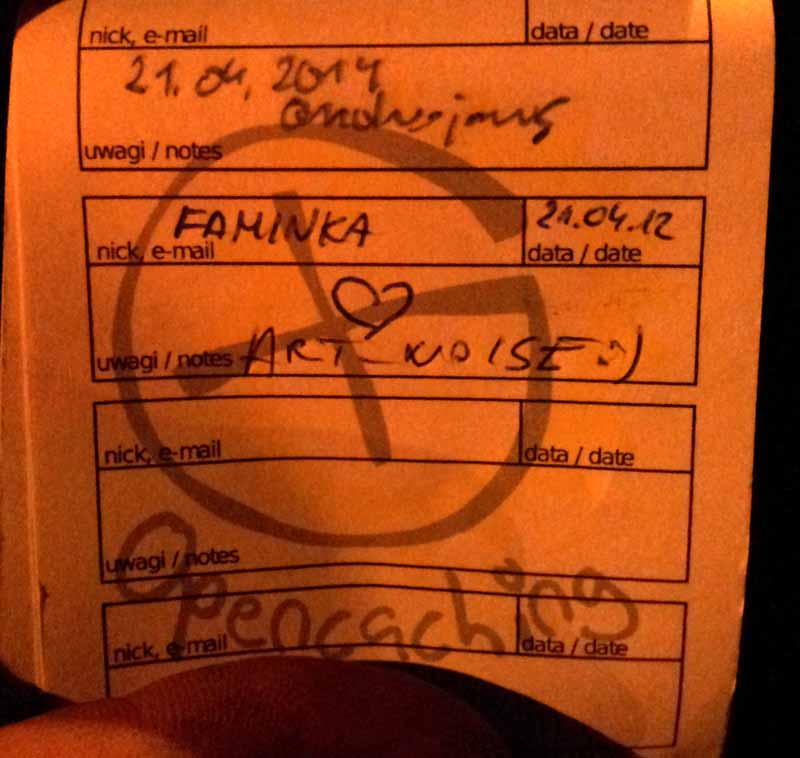 nick, e-mail
data / date
21.04.2014
uwagi / notes
FAMINKA
21.04.12
nick, e-mail
data / date
uwagi / notes ART_NOISE :)
nick, e-mail
data / date
uwagi / notes
Opencaching
nick, e-mail
data / date